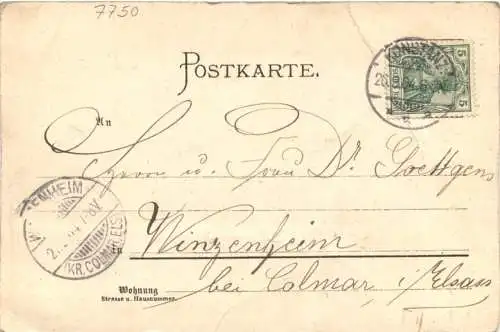 7750
POSTKARTE.
KONSTANZ
5 5
An
Herrn u. Frau Dr. Goettgens
ENHEIM
(KR. COLMAR ELS)
in Winzenheim
bei Colmar i/Elsass
Wohnung
Strasse u. Hausnummer